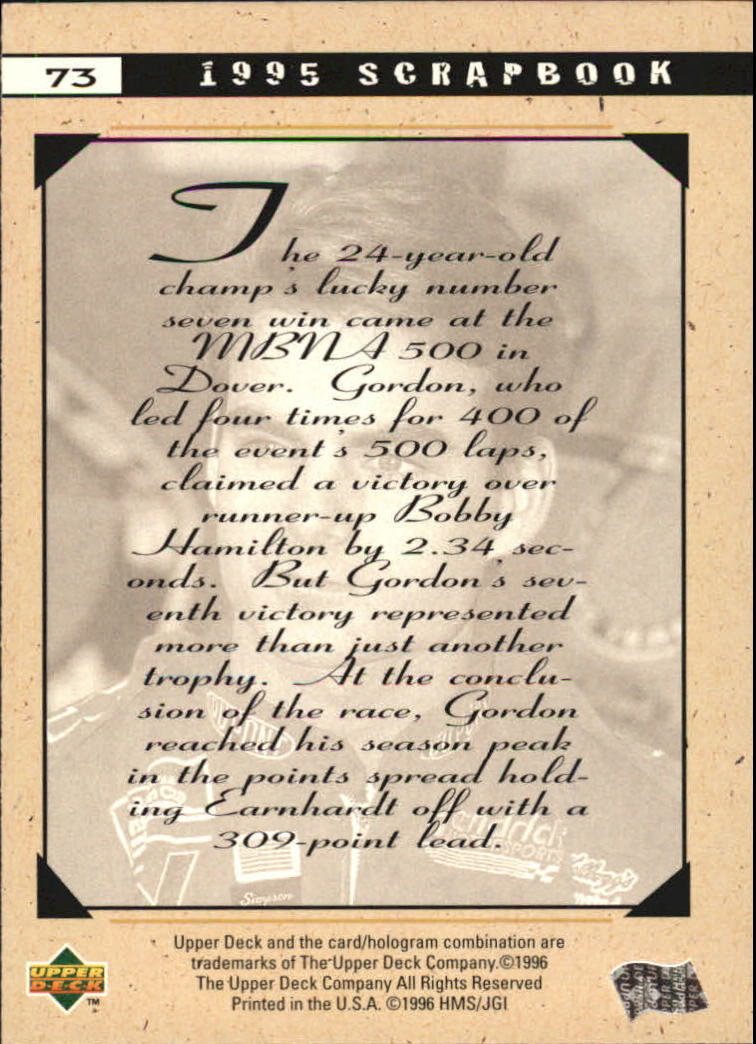 73 1995 SCRAPBOOK
The 24-year-old
champ's lucky number
seven win came at the
MBNA 500 in
Dover. Gordon, who
led four times for 400 of
the event's 500 laps,
claimed a victory over
runner-up Bobby
Hamilton by 2.34 sec-
onds. But Gordon's sev-
enth victory represented
more than just another
trophy. At the conclu-
sion of the race, Gordon
reached his season peak
in the points spread hold-
ing Earnhardt off with a
309-point lead.
Simpson
Kellogg's
Upper Deck and the card/hologram combination are
trademarks of The Upper Deck Company.©1996
The Upper Deck Company All Rights Reserved
Printed in the U.S.A. ©1996 HMS/JGI
UPPER
DECK
TM